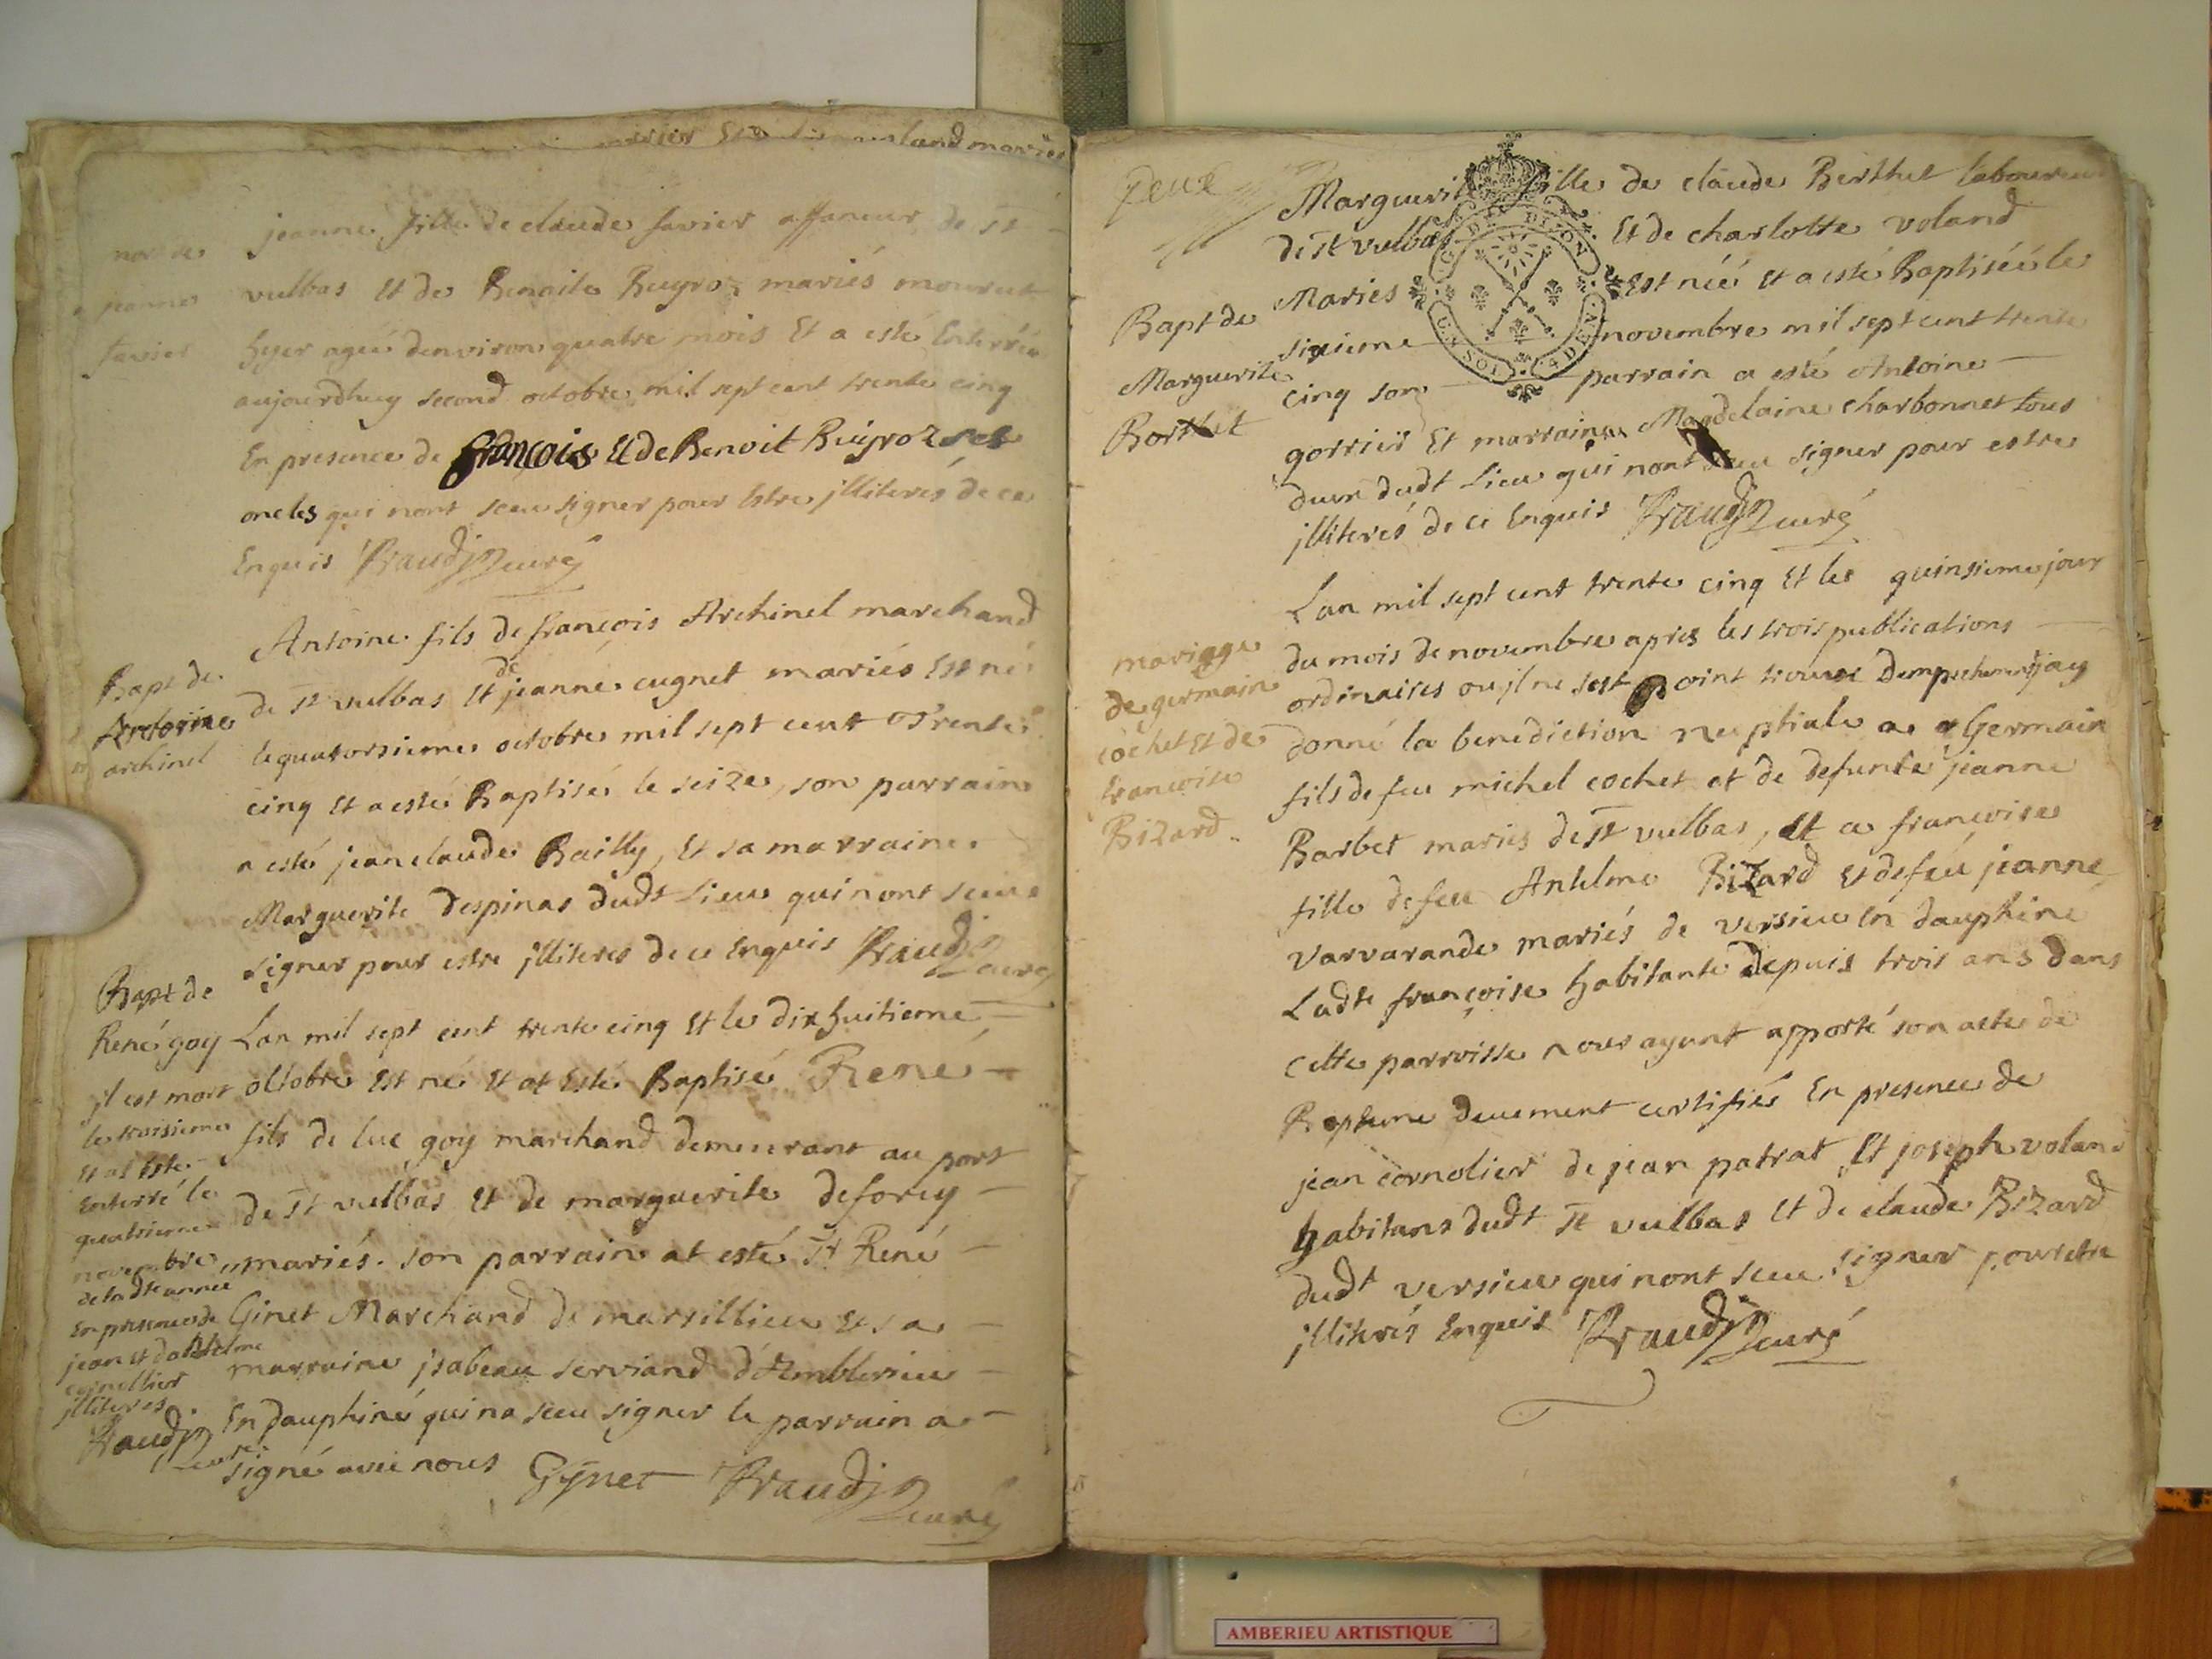 land mariés
jeanne fille de claude favier affaneur de St
jeanne
favier
vulbas Et de Benoite Buyroz mariés mourut
hyer agée denviron quatre mois Et a esté Enterrée
aujourdhuy second octobre mil sept cent trente cinq
En presence de françois Et de Benoit Buyroz ses
oncles qui nont sceu signer pour Estre jlliterés de ce
Enquis curé
Bapt de
Antoine
archinel
Antoine fils de françois Archinel marchand
de St vulbas Et de jeanne cugnet mariés Est né
le quatorsieme octobre mil sept cent Trente
cinq Et a esté Baptisé le seize, son parrain
a esté jean claude Bailly, Et sa marraine
Marguerite Despinas dudt Lieu qui nont sceu
signer pour estre jlliteres de ce Enquis curé
Bapt de
René goy
jl est mort
le troisieme
Et at Esté
Enterré le
quatrieme
novembre
de ladte année
En presence de
jean Et dantelme
cornollier
jlliteres.
curé
Lan mil sept cent trente cinq Et le dix huitieme
octobre Est né Et at Esté Baptisé René
fils de luc goy marchand demeurant au port
de St vulbas Et de marguerite deforey
mariés. son parrain at esté Sr René
Ginet Marchand de marsillieu Et sa
marraine jsabeau serviand d'Amblerieu
En dauphiné qui na sceu signer le parrain a
signé avec nous Gÿnet curé
Bapt de
Marguerite
Berthet
Marguerite fille de claude Berthet laboureur
de St vulbas Et de charlotte voland
Mariés Est néé Et a esté Baptiséé le
sixieme novembre mil sept cent trente
cinq son parrain a esté Antoine
gorrier Et marraine Magdelaine charbonnet tous
dudt Lieu qui nont sceu signer pour estre
jlliterés de ce Enquis curé
mariage
de germain
cochet Et de
francoise
Bizard
Lan mil sept cent trente cinq Et le quinsieme jour
du mois de novembre apres les trois publications
ordinaires ou jl ne sest point trouvé Dempechement jay
donné la benediction nuptiale a Germain
fils de feu michel cochet et de defunte jeanne
Barbet mariés de St vulbas, Et a françoise
fille de feu Antelme Bizard Et de feu jeanne
varvarande mariés de versieu En dauphine
Ladte françoise habitante depuis trois ans dans
cette parroisse nous ayant apporté son acte de
Bapteme deuement certifiés En presence de
jean cornolier de jean patrat Et joseph voland
habitans dudt St vulbas Et de claude Bizard
dudt versieu qui nont sceu signer pour etre
jlliterés Enquis curé
AMBERIEU ARTISTIQUE